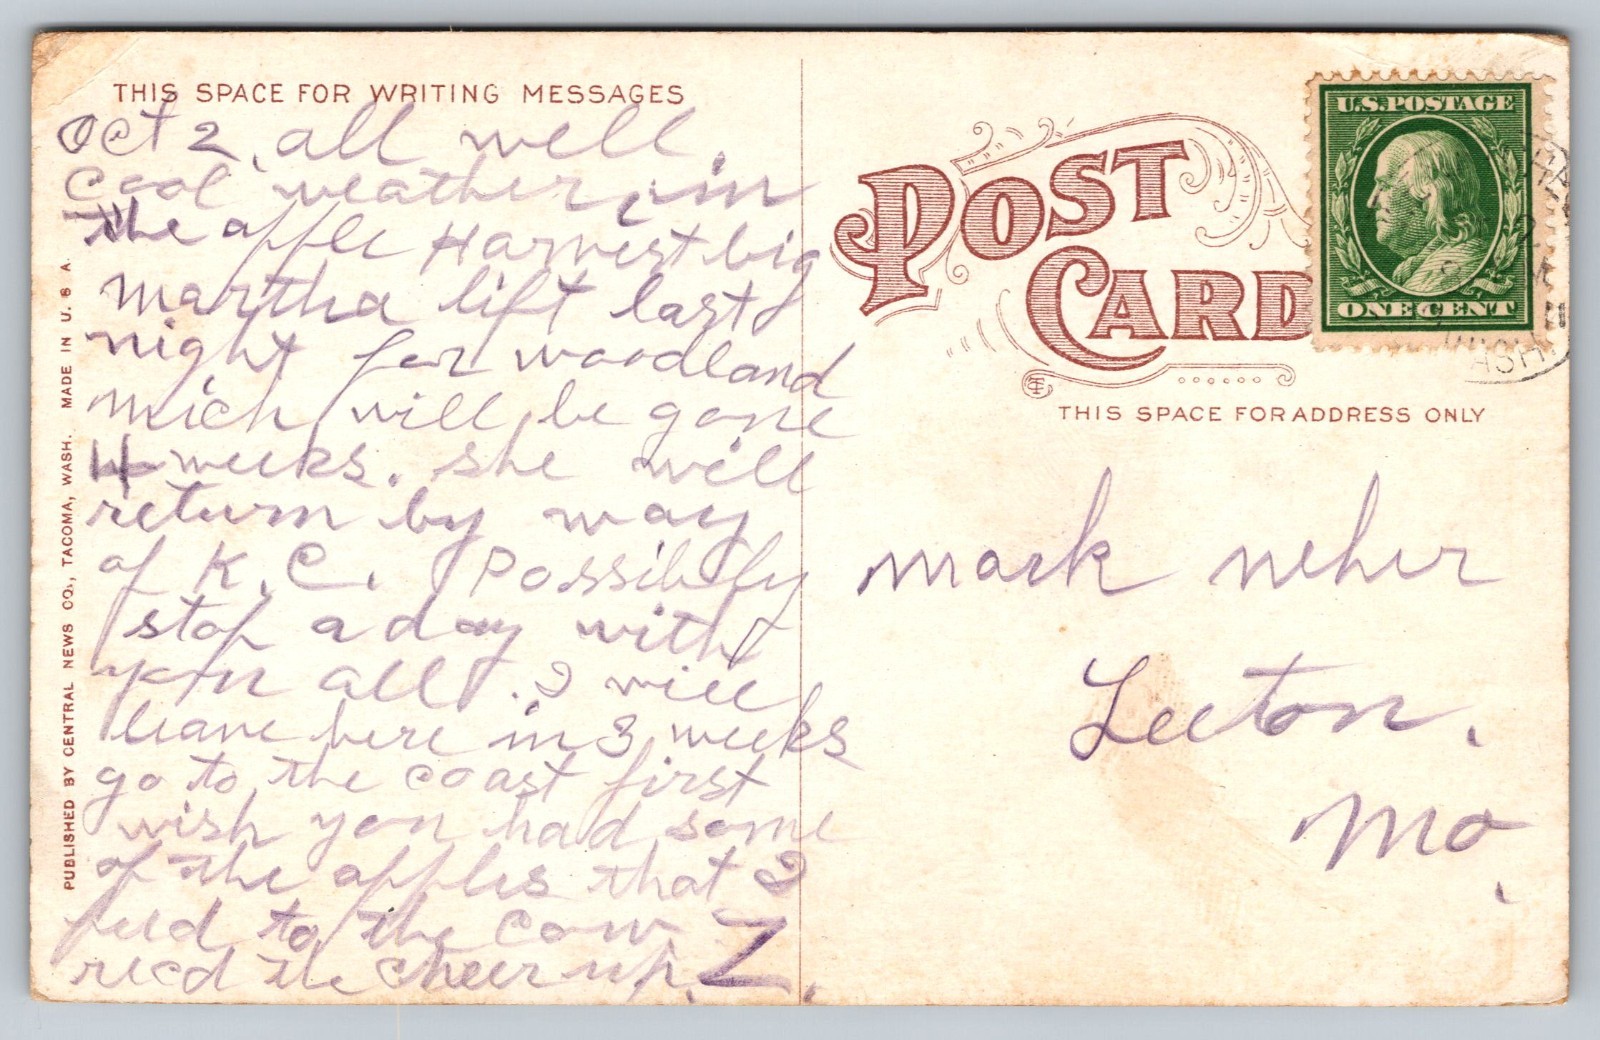 THIS SPACE FOR WRITING MESSAGES
Oct 2, all well.
Cool weather, in
the apple Harvest big
martha lift last
night for woodland
mich will be gone
4 weeks. she will
return by way
of K.C. Possibily
stop a day with
you all. I will
leave here in 3 weeks
go to the coast first
wish you had some
of the apples that I
feed to the cow
riecd the cheer up. Z.
PUBLISHED BY CENTRAL NEWS CO., TACOMA, WASH. MADE IN U. S. A.
POST
CARD
THIS SPACE FOR ADDRESS ONLY
U.S. POSTAGE
ONE CENT
WASH
mark neher
Leeton.
Mo.